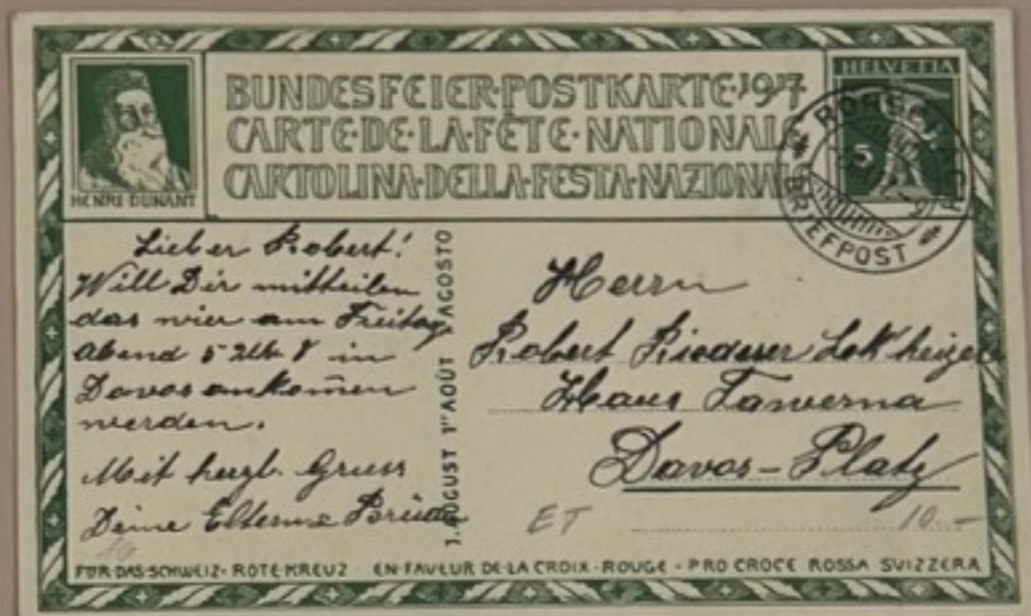 BUNDESFEIER·POSTKARTE·1917
CARTE·DE·LA·FÊTE·NATIONALE
CARTOLINA·DELLA·FESTA·NAZIONA
HENRI DUNANT
HELVETIA
5
RORSCHACH
BRIEFPOST
Lieber Robert!
Will Dir mitteilen
das wier am Freitag
abend 5 Uhr 8 in
Davos ankom̄en
werden.
Mit herzl. Gruss
Deine Eltern
1. AUGUST 1er AOÛT 1º AGOSTO
Herrn
Robert Lokheizer
Haus Tawerna
Davos-Platz
ET
10.-
FÜR·DAS·SCHWEIZ·ROTE·KREUZ · EN·FAVEUR DE·LA CROIX-ROUGE - PRO CROCE ROSSA SVIZZERA